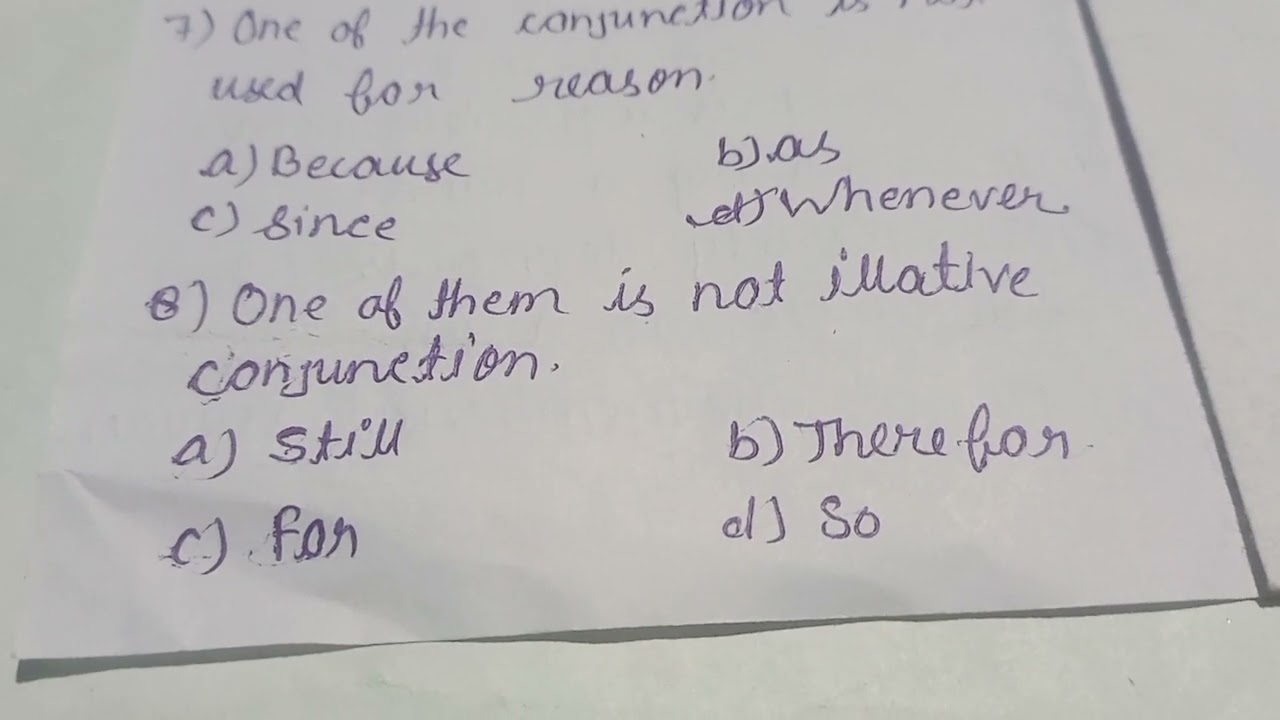 7) One of the conjunction is
used for reason.
a) Because b) as
c) Since d) Whenever
8) One of them is not illative
conjunction.
a) Still b) Therefor
c) For d) So